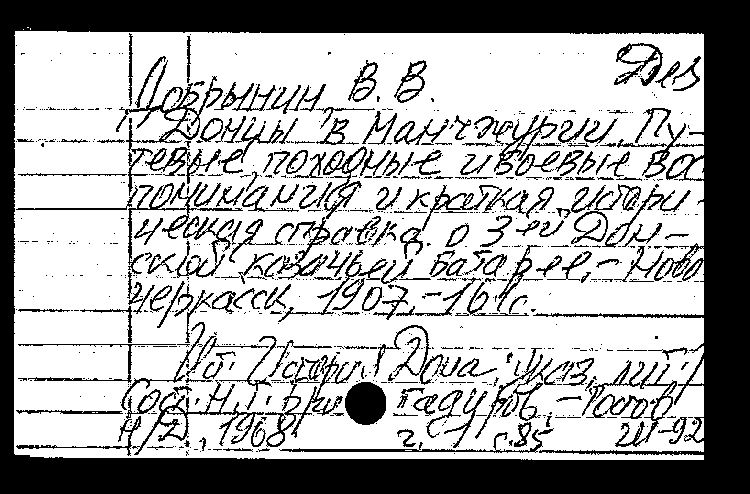 Дез
Добрынин, В. В.
Донцы в Манчжурии. Пу-
тевые, походные и боевые вос
поминания и краткая истори-
ческая справка о 3-ей Дон-
ской казачьей батарее, - Ново
черкасск, 1907. - 161с.
Ист. История Дона, указ. лит. /
Сост. Н.Г. гадуров, - Ростов
н/Д., 1968 г. 1 с.85 2Ш-92